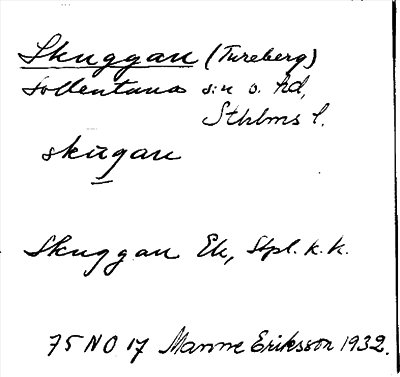 Skuggan (Tureberg)
Sollentuna s:n o. hd,
Sthlms l.
skugan
Skuggan Ek, Stpl. k. k.
75 NO 17 Manne Eriksson 1932.